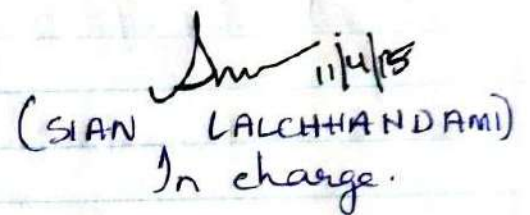 11/4/15
(SIAN LALCHHANDAMI)
In charge.